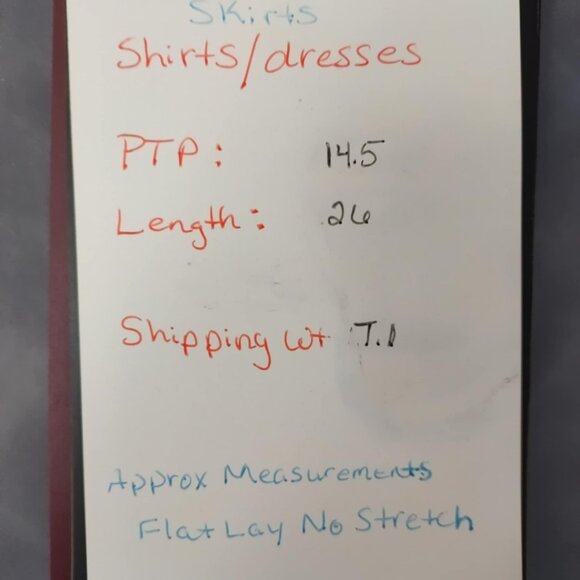 Skirts
Shirts/dresses
PTP: 14.5
Length: 26
Shipping wt
Approx Measurements
Flat Lay No Stretch